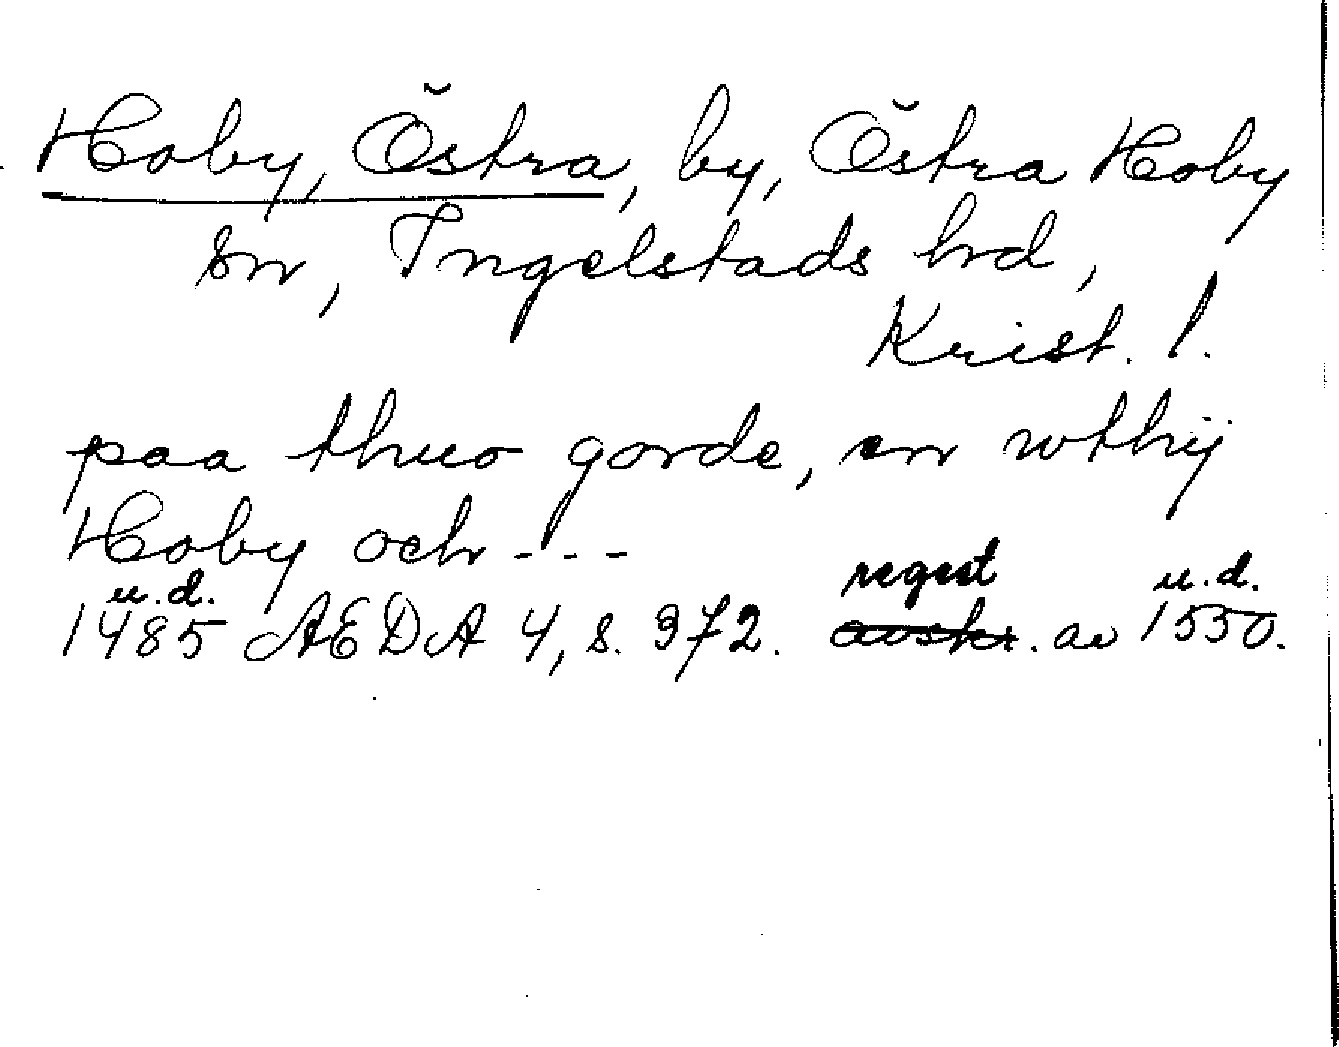 Hoby, Östra, by, Östra Hoby
sn, Ingelstads hrd,
Krist. l.
paa thuo gorde, en wthij
Hoby och - - -
u.d. regest u.d.
1485 AEDA 4, s. 372. avskr. av 1550.